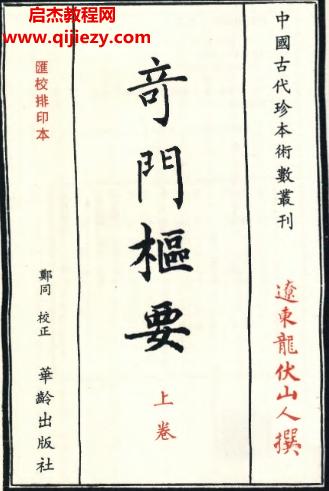 启杰教程网
www.qijiezy.com
中國古代珍本術數叢刊
遼東龍伏山人撰
奇門樞要
上卷
匯校排印本
鄭同 校正
華齡出版社